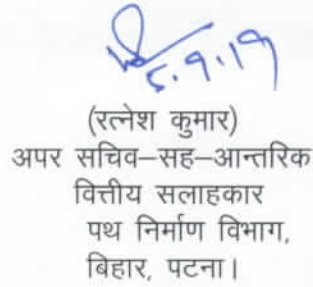 5.9.19
(रत्नेश कुमार)
अपर सचिव–सह–आन्तरिक
वित्तीय सलाहकार
पथ निर्माण विभाग,
बिहार, पटना।